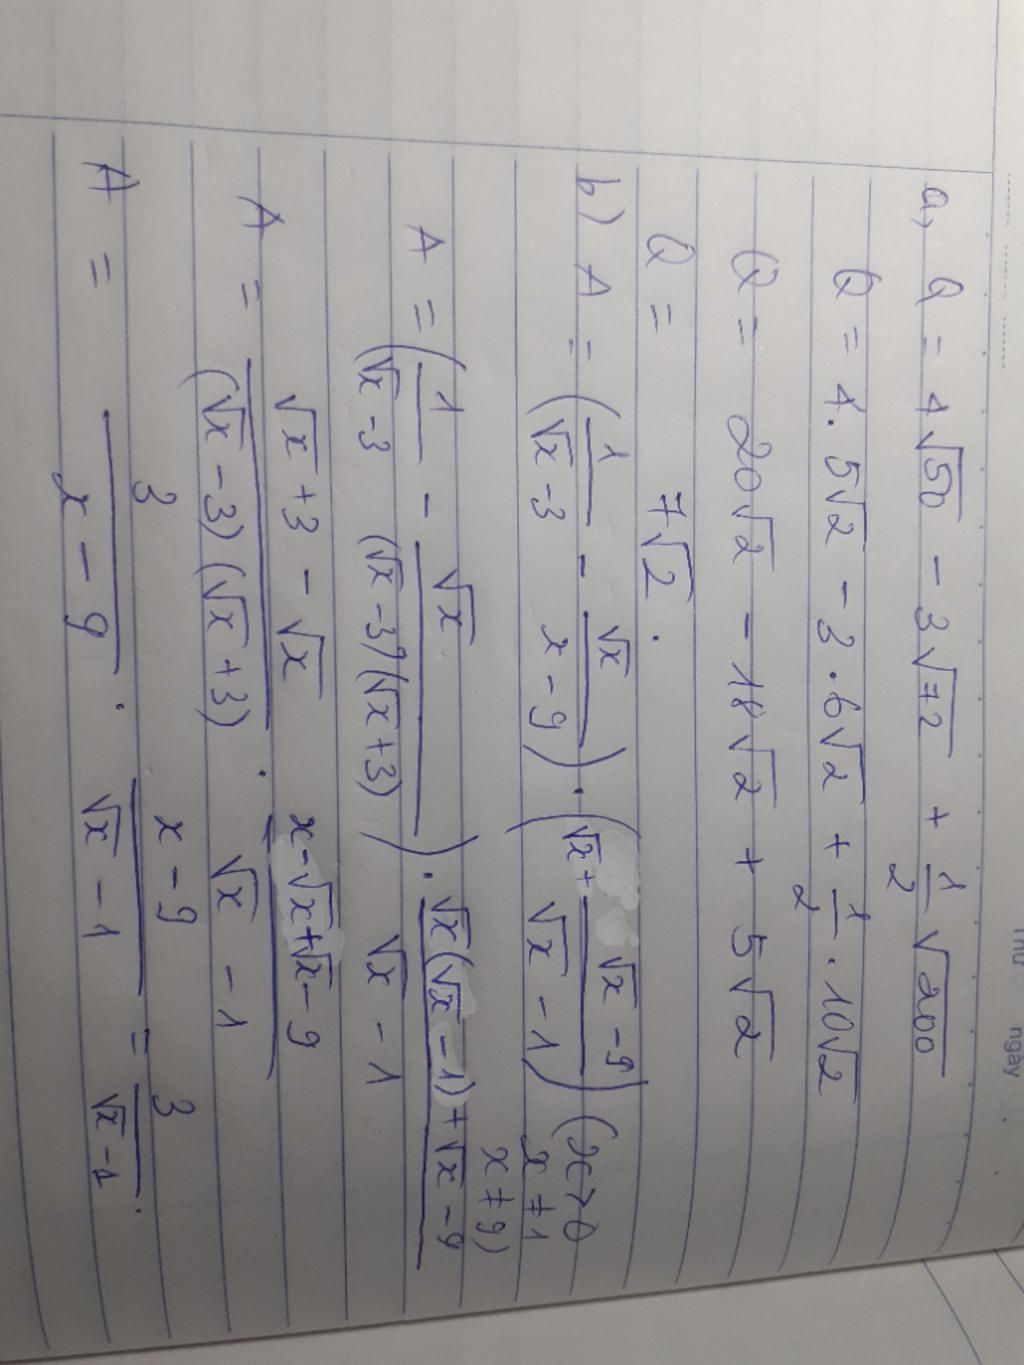 Thứ ngày
a, Q = 4√50 - 3√72 + 1/2 √200
Q = 4 . 5√2 - 3 . 6√2 + 1/2 . 10√2
Q = 20√2 - 18√2 + 5√2
Q = 7√2 .
b) A = (1/(√x - 3) - √x/(x - 9)) . (√x + (√x - 9)/(√x - 1)) (x > 0
x ≠ 1
x ≠ 9)
A = (1/(√x - 3) - √x/((√x - 3)(√x + 3))) . (√x(√x - 1) + √x - 9)/(√x - 1)
A = (√x + 3 - √x)/((√x - 3)(√x + 3)) . (x - √x + √x - 9)/(√x - 1)
A = 3/(x - 9) . (x - 9)/(√x - 1) = 3/(√x - 1) .